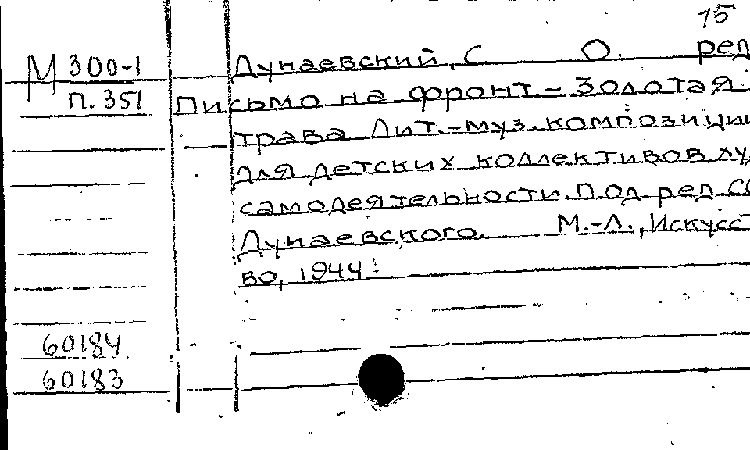 15
М 300-1 Дунаевский, С О. ред
П. 351 Письмо на фронт - Золотая
трава Лит.-муз. композиции
для детских коллективов ху
самодеятельности. Под ред С
Дунаевского. М.-Л., Искусст
во, 1944.
60184
60183